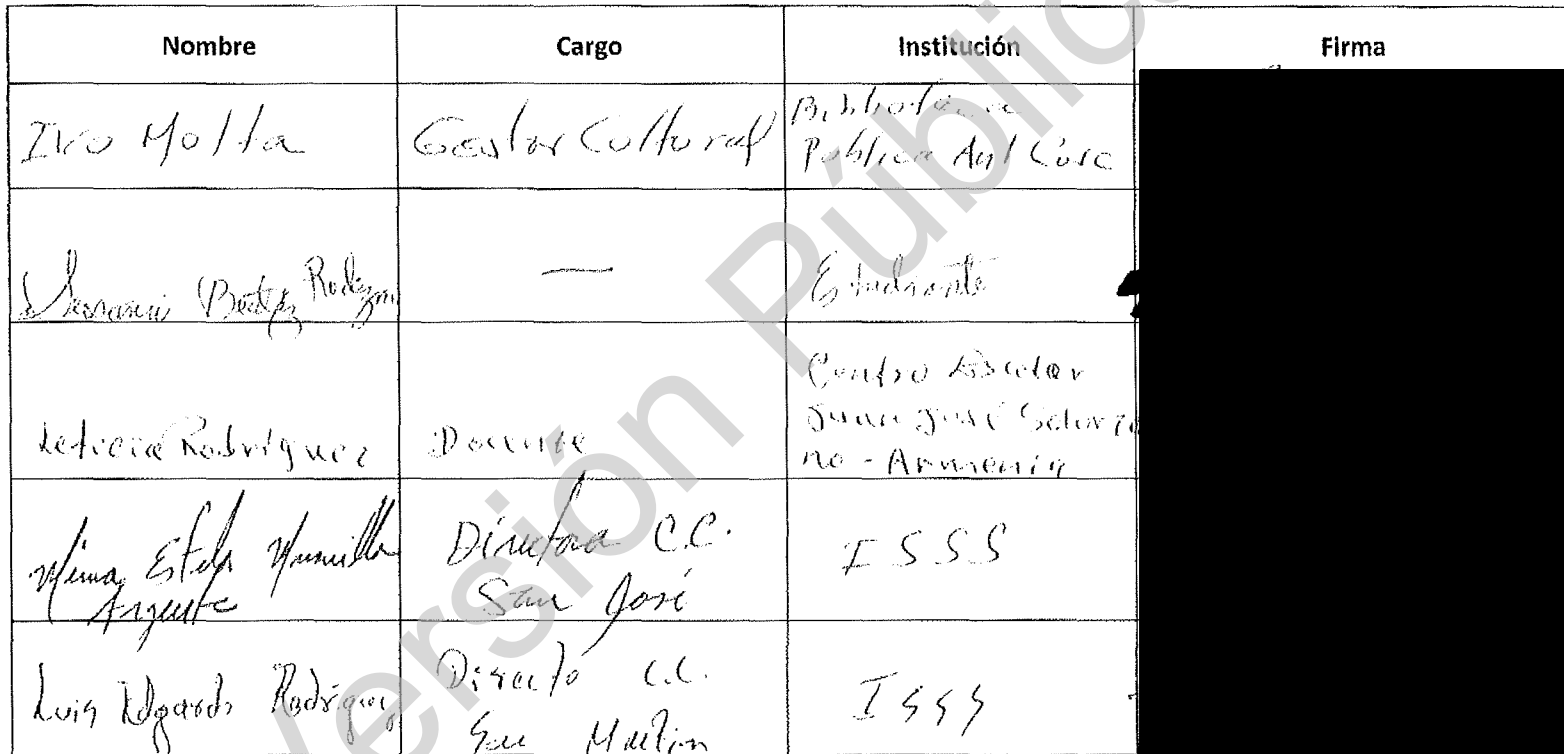 Nombre Cargo Institución Firma
Ivo Molta Gestor Cultural Biblioteca
Pública Ant Cusc
Beatriz Rodrígu — Estudiante
Leticia Rodríguez Docente Centro Escolar
Juan José Solórza
no - Armenia
Estela Argueta Directora C.C.
San José ISSS
Luis Edgardo Rodríguez Directo C.C.
San Martin ISSS
Versión Pública